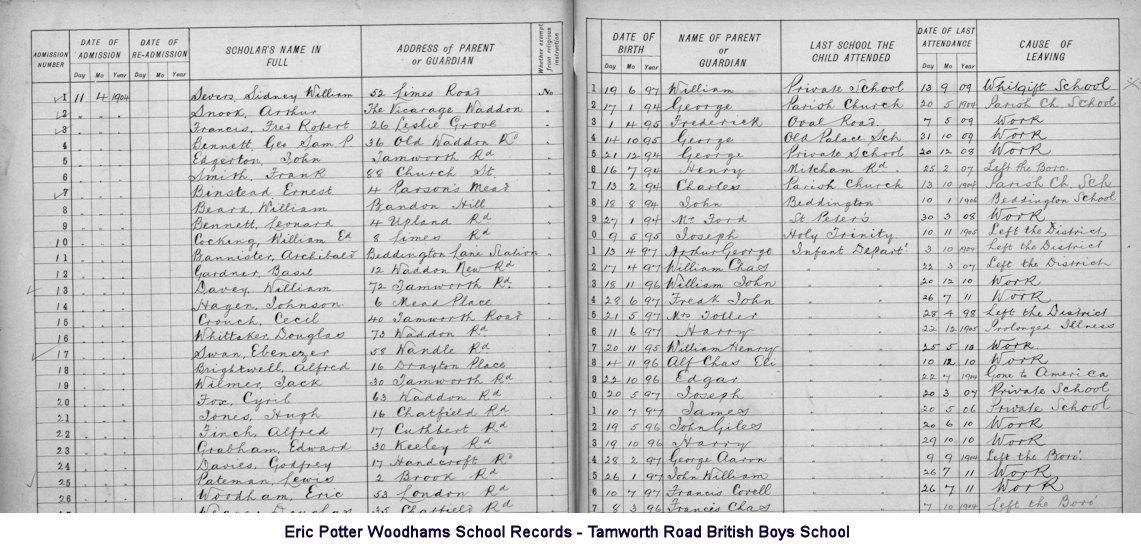 ADMISSION NUMBER DATE OF ADMISSION DATE OF RE-ADMISSION SCHOLAR'S NAME IN FULL ADDRESS of PARENT or GUARDIAN Whether exempt from religious instruction
Day Mo Year Day Mo Year
1 11 4 1904 Severs, Sidney William 52 Limes Road No
2 Snook, Arthur The Vicarage Waddon
3 Francis, Fred Robert 26 Leslie Grove
4 Bennett, Geo Sam P 36 Old Waddon Rd
5 Edgerton, John Tamworth Rd
6 Smith, Frank 88 Church St.
7 Binstead Ernest 4 Parson's Mead
8 Beard, William Hill
9 Bennett, Leonard 4 Upland Rd
10 Cocking, William Ed 8 Limes Rd
11 Bannister, Archibald Beddington Lane Station
12 Gardner, Basil 12 Waddon New Rd
13 Davey, William 72 Tamworth Rd
14 Hagen, Johnson 6 Mead Place
15 Crouch, Cecil 40 Tamworth Road
16 Whittaker, Douglas 73 Waddon Rd
17 Swan, Ebenezer 58 Wandle Rd
18 Brightwell, Alfred 16 Drayton Place
19 Wilmer, Jack 30 Tamworth Rd
20 Fox, Cyril 63 Waddon Rd
21 Jones, Hugh 16 Chatfield Rd
22 Finch, Alfred 17 Cuthbert Rd
23 Grabham, Edward 30 Keeley Rd
24 Davies, Godfrey 17 Handcroft Rd
25 Pateman, Lewis 2 Brook Rd
26 Woodham, Eric 53 London Rd
35 Chatfield Rd
DATE OF BIRTH NAME OF PARENT or GUARDIAN LAST SCHOOL THE CHILD ATTENDED DATE OF LAST ATTENDANCE CAUSE OF LEAVING
Day Mo Year Day Mo Year
1 19 6 97 William Private School 13 9 09 Whitgift School
2 17 1 94 George Parish Church 20 5 1904 Parish Ch. School
3 1 4 95 Frederick Oval Road. 7 5 09 Work
4 14 10 95 George Old Palace Sch. 21 10 09 Work
5 21 12 94 George Private School 20 12 08 Work
6 16 7 94 Henry Mitcham Rd. 25 2 07 Left the Boro.
7 13 2 94 Charles Parish Church 13 10 1904 Parish Ch. Sch
8 18 8 94 John Beddington 10 1 1906 Beddington School
9 27 1 94 Mr Ford St Peter's 30 3 08 Work
0 9 5 95 Joseph Holy Trinity 10 11 1905 Left the District,
1 13 4 97 Arthur George Infant Depart 3 10 1904 Left the District
2 17 4 97 William Chas 22 3 07 Left the District
3 18 11 96 William John 20 12 10 Work
4 28 6 97 Freak John 26 7 11 Work
5 21 5 97 Mrs Toller 28 4 98 Left the District
6 11 6 97 Harry 22 12 1905 Prolonged Illness
7 20 11 95 William Henry 25 5 10 Work.
8 4 11 96 Alf Chas Eli 10 12 10 Work
9 22 10 96 Edgar 22 7 1904 Gone to America
0 20 5 97 Joseph 20 3 07 Private School
1 10 7 97 James 20 5 06 Private School
2 19 5 96 John Giles 20 6 10 Work
3 19 10 96 Harry 29 10 10 Work
4 28 2 97 George Aaron 9 9 1904 Left the Boro.
5 26 1 97 John William 26 7 11 Work
6 10 7 97 Francis Corell 26 7 11 Work
7 8 3 96 Francis Chas 7 10 1904 Left the Boro
Eric Potter Woodhams School Records - Tamworth Road British Boys School